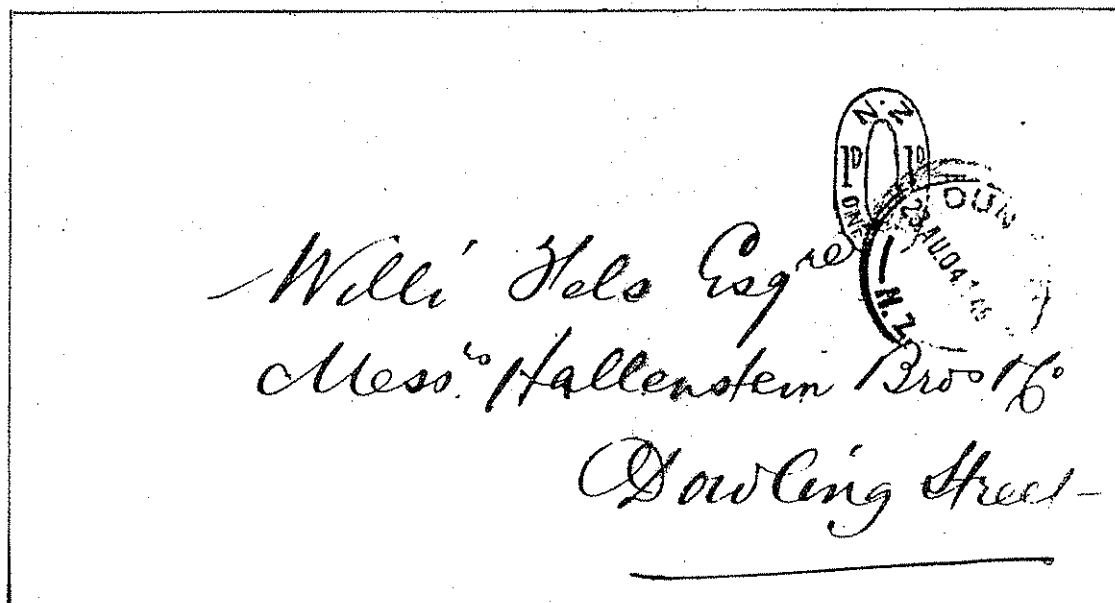 N.Z
1D 1D
ONE
DUN
23 AU 04
N.Z.
Willi Fels Esqre
Messrs Hallenstein Bros & Co
Dowling Street